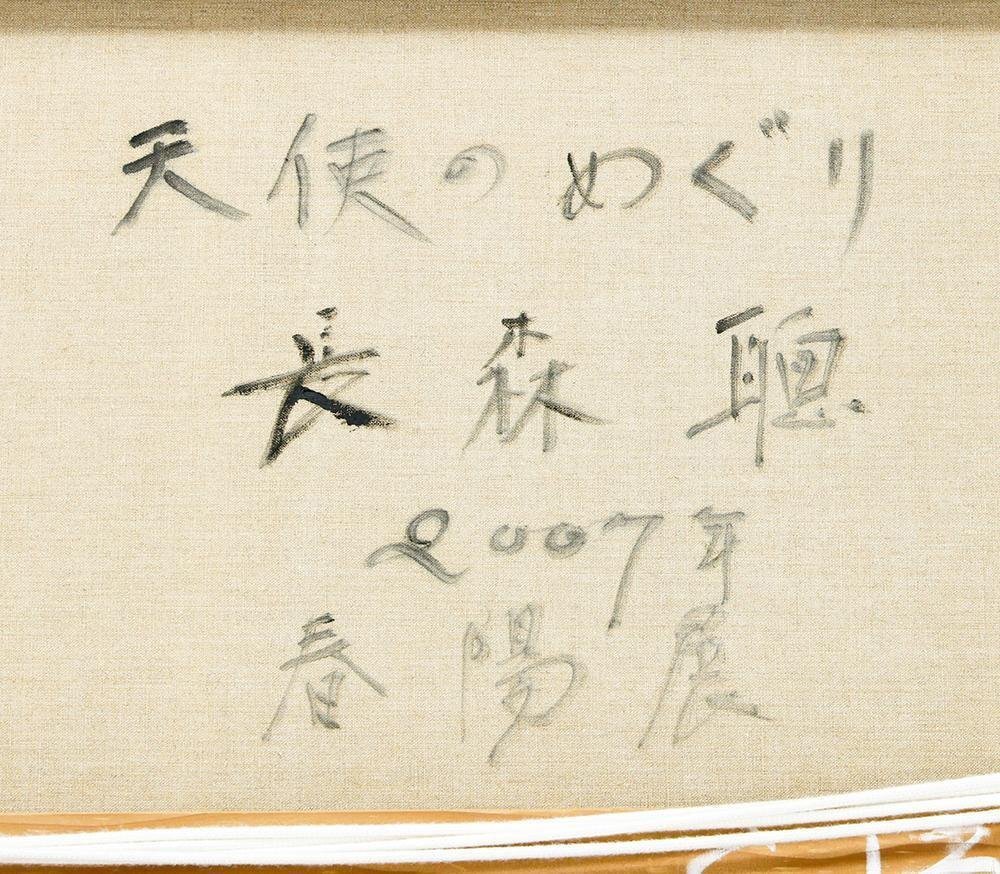 天使のめぐり
長森聰
2007年
春陽展